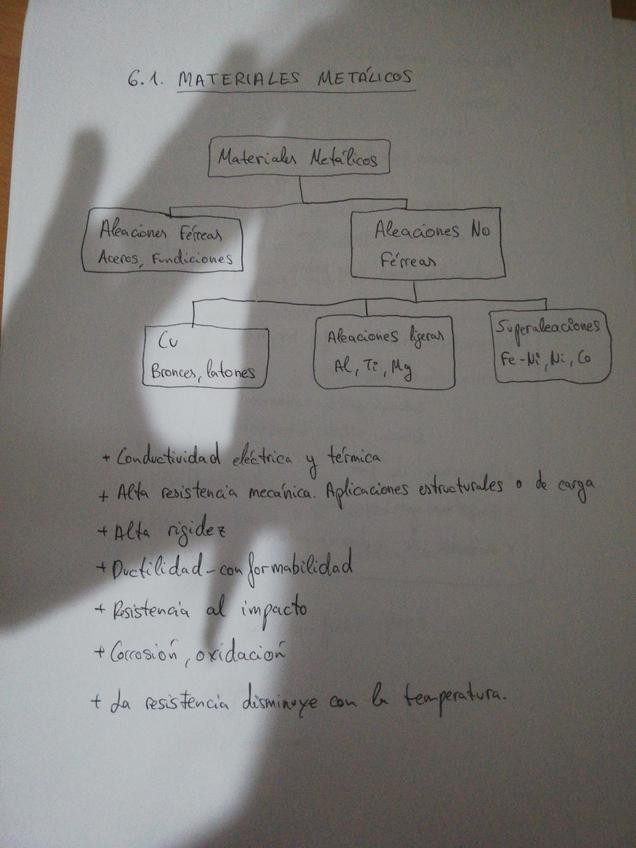 6.1. MATERIALES METÁLICOS
Materiales Metálicos
Aleaciones Férreas
Aceros, Fundiciones
Aleaciones No
Férreas
Cu
Bronces, latones
Aleaciones ligeras
Al, Ti, Mg
Superaleaciones
Fe-Ni, Ni, Co
+ Conductividad eléctrica y térmica
+ Alta resistencia mecánica. Aplicaciones estructurales o de carga
+ Alta rigidez
+ Ductilidad - conformabilidad
+ Resistencia al impacto
+ Corrosión, oxidación
+ La resistencia disminuye con la temperatura.